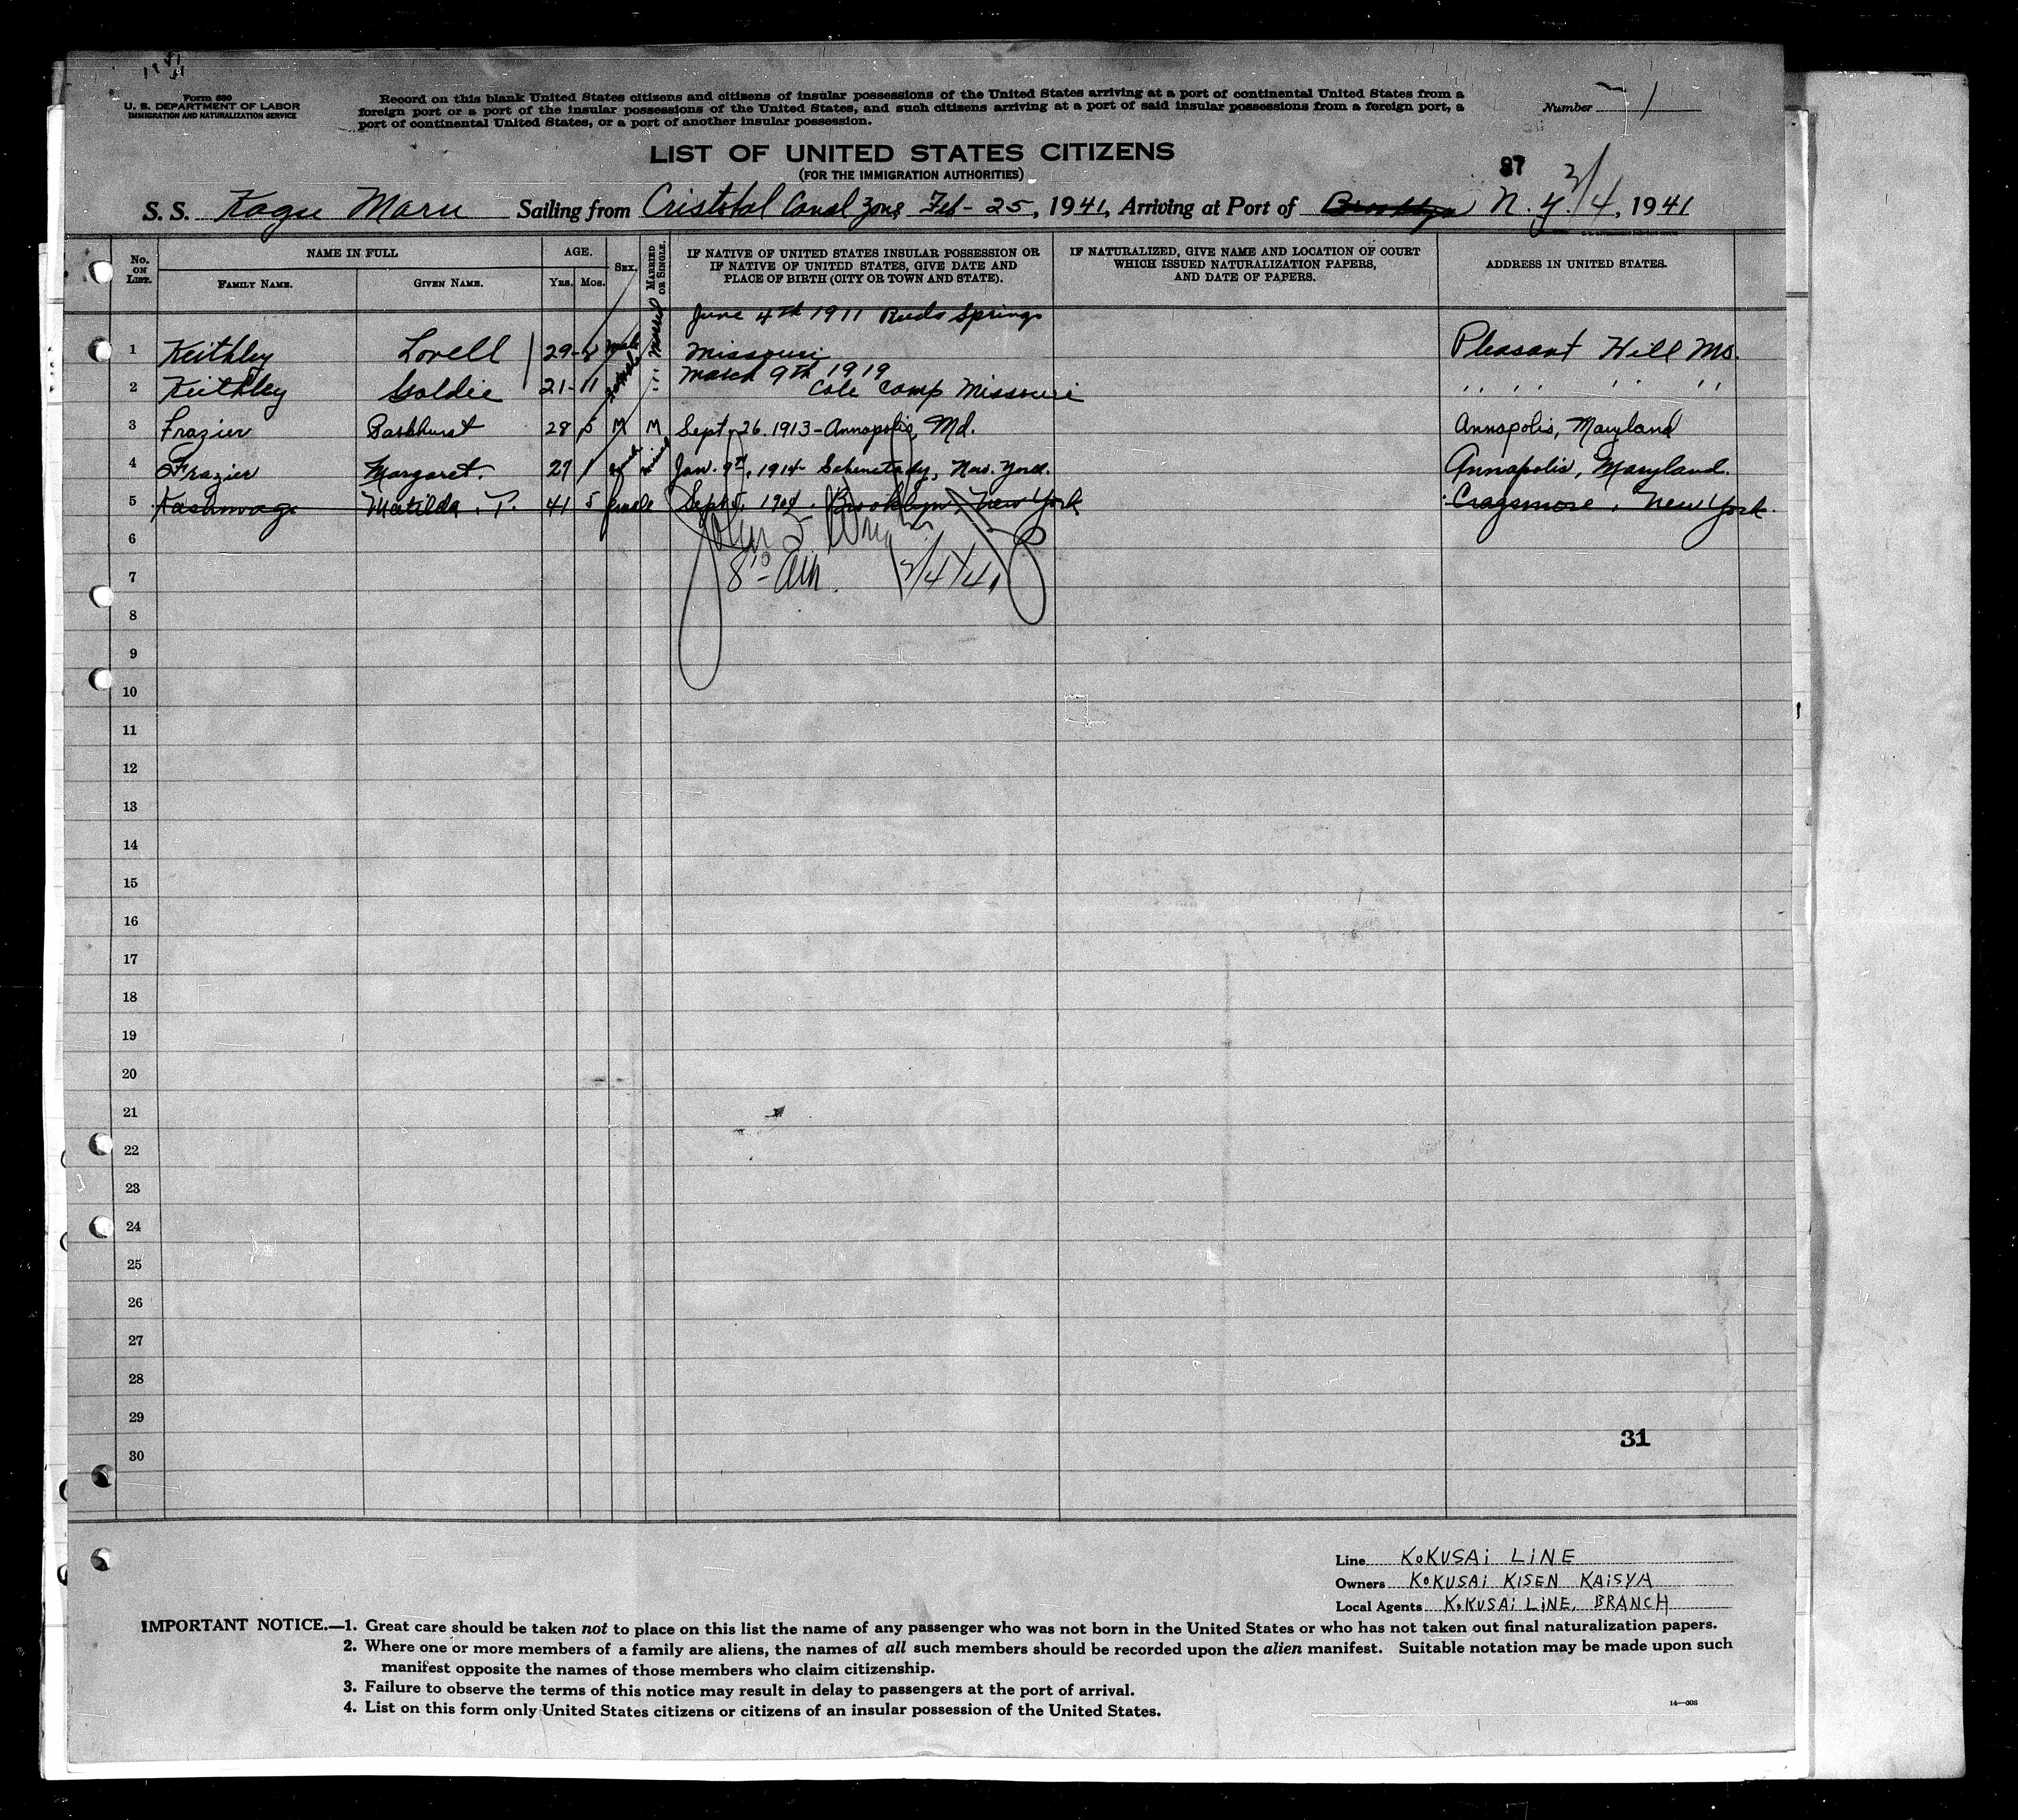 Form 630
U. S. DEPARTMENT OF LABOR
IMMIGRATION AND NATURALIZATION SERVICE
Record on this blank United States citizens and citizens of insular possessions of the United States arriving at a port of continental United States from a
foreign port or a port of the insular possessions of the United States, and such citizens arriving at a port of said insular possessions from a foreign port, a
port of continental United States, or a port of another insular possession.
Number 1
LIST OF UNITED STATES CITIZENS
(FOR THE IMMIGRATION AUTHORITIES)
87
S. S. Kagu Maru Sailing from Cristobal Canal Zone Feb - 25, 1941, Arriving at Port of Brooklyn N. Y. 3/4, 1941
No. ON LIST. NAME IN FULL AGE. SEX. MARRIED OR SINGLE. IF NATIVE OF UNITED STATES INSULAR POSSESSION OR IF NATIVE OF UNITED STATES, GIVE DATE AND PLACE OF BIRTH (CITY OR TOWN AND STATE). IF NATURALIZED, GIVE NAME AND LOCATION OF COURT WHICH ISSUED NATURALIZATION PAPERS, AND DATE OF PAPERS. ADDRESS IN UNITED STATES.
FAMILY NAME. GIVEN NAME. YRS. MOS.
June 4th 1911 Reeds Springs
1 Keithley Lovell 29-8 male Married Missouri Pleasant Hill Mo.
March 9th 1919
2 Keithley Goldie 21-11 female " Cole Camp Missouri " " " "
3 Frazier 28 5 M M Sept. 26. 1913 - Annapolis, Md. Annapolis, Maryland
4 Frazier Margaret. 27 1 Jan. 9th, 1914 - Schenectady, New York. Annapolis, Maryland.
5 Matilda. T. 41 5 female Sept 5, 1904. Brooklyn, New York Cragsmore, New York.
6
7 8 10 AM. 3/4/41
8
9
10
11
12
13
14
15
16
17
18
19
20
21
22
23
24
25
26
27
28
29
31
30
Line KOKUSAI LINE
Owners KOKUSAI KISEN KAISYA
Local Agents KOKUSAI LINE, BRANCH
IMPORTANT NOTICE.—1. Great care should be taken not to place on this list the name of any passenger who was not born in the United States or who has not taken out final naturalization papers.
2. Where one or more members of a family are aliens, the names of all such members should be recorded upon the alien manifest. Suitable notation may be made upon such
manifest opposite the names of those members who claim citizenship.
3. Failure to observe the terms of this notice may result in delay to passengers at the port of arrival.
4. List on this form only United States citizens or citizens of an insular possession of the United States.